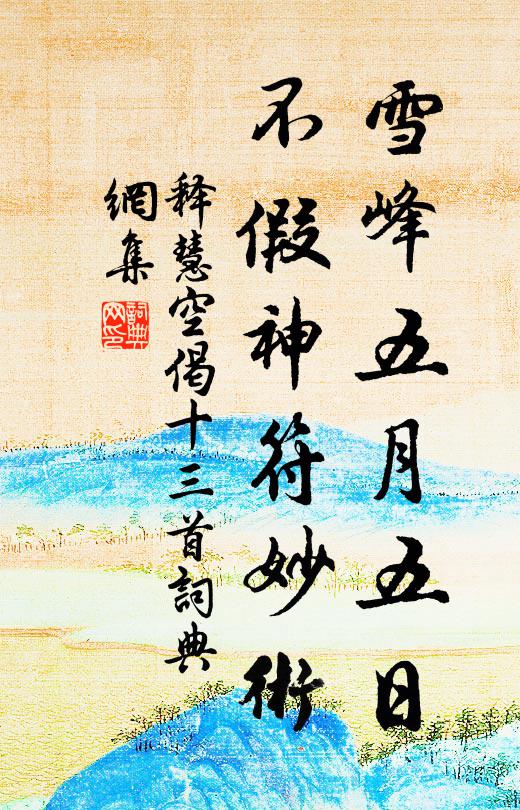 雪峰五月五日
不假神符妙術
释慧空偈十三首詞典
網集
詞典
网印